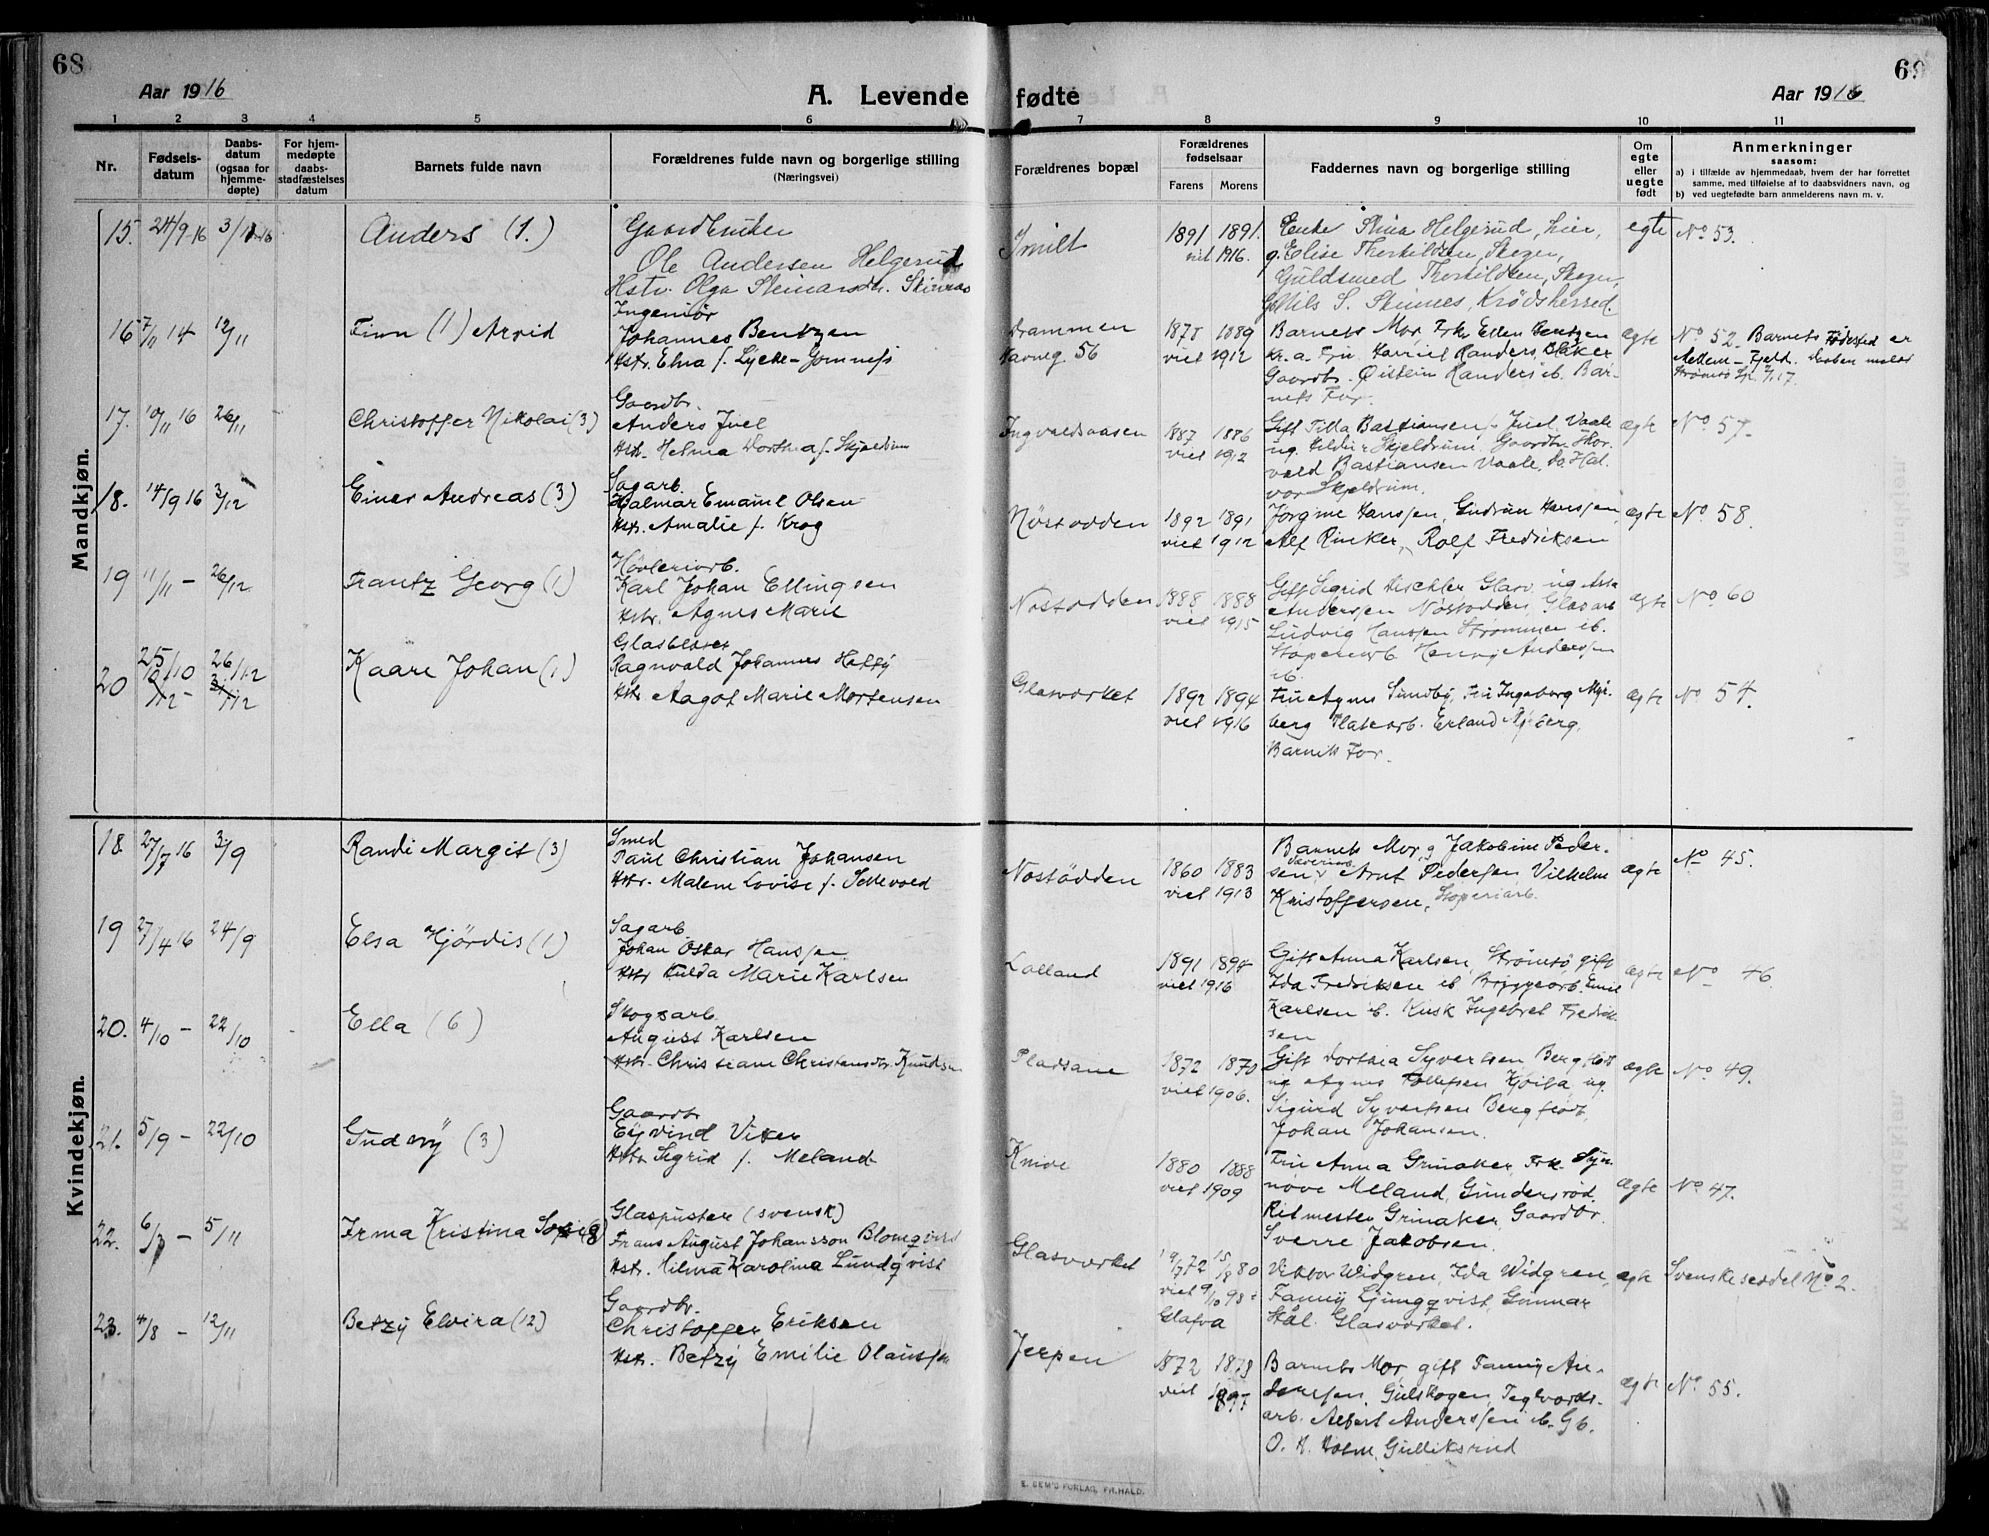 68
69
Aar 1916
A. Levende fødte
Aar 1916
1 2 3 4 5 6 7 8 9 10 11
Nr.
Fødsels-
datum
Daabs-
datum
(ogsaa for
hjemme-
døpte)
For hjem-
medøpte
daabs-
stadfæstelses
datum
Barnets fulde navn
Forældrenes fulde navn og borgerlige stilling
(Næringsvei)
Forældrenes bopæl
Forældrenes
fødselsaar
Farens Morens
Faddernes navn og borgerlige stilling
Om
egte
eller
uegte
født
Anmerkninger
saasom:
a) i tilfælde av hjemmedaab, hvem der har forrettet
samme, med tilføielse af to daabsvidners navn, og
b) ved uegtefødte barn anmelderens navn m. v.
Mandkjøn.
15. 24/9 16
Anders (1.)
Gaardbruker
Ole Andersen Helgerud
Hstr. Olga
1891 1891.
1916.
Enke Stina Helgerud, Lier,
g. Elise Thorkildsen, Skoger,
Guldsmed Thorkildsen, Skoger,
Nils S. Skinnes, Krødsherred.
egte
No 53.
16 7/11 14 12/11
Finn (1) Arvid
Ingeniør
Johannes Bentzen
Hstr. Elna f. Lycke-Gomnes
Drammen
Havneg. 56
1878 1889
viet 1912
Barnets Mor, Frk Ellen Bentzen
Kr.a. Fru Harriet Randers, Blaker
Gaardbr. Øistein Randers ib. Bar-
nets Far.
ægte
No 52. Barnets Fødested er
17. 10/11 16 26/11
Christoffer Nikolai (3)
Gaardbr.
Anders Juel
Hstr. Helma Dorthea f. Skjeldrum
Ingvaldsaasen
1887 1886
viet 1912
Gift Tilla Bastiansen f. Juel, Vaale
ug. Hilda Skjeldrum, Gaardbr. Thor-
vald Bastiansen Vaale, do. Hal-
vor Skjeldrum.
ægte
No 57.
18. 14/9 16 3/12
Einar Andreas (3)
Sagarb.
Hjalmar Emanuel Olsen
Hstr. Amalie f. Krog
Nøstodden
1892 1891
viet 1912
Hanssen, Gudrun Hanssen,
Alf Rinker, Rolf Fredriksen
ægte
No 58.
19 11/11 – 26/12
Frantz Georg (1)
Høvleriarb.
Karl Johan Ellingsen
Hstr. Agnes Marie
Nøstodden
1888 1888
viet 1915
Gift Sigrid Tischler Glasv. ug Asta
Anderssen Nøstodden, Glasarb
Ludvig Hanssen Strømmen ib.
Støperiarb Henry Anderssen
ib.
ægte
No 60
20 25/10 26/12
Kaare Johan (1)
Glasblaser
Ragnvald Johannes Hoffy
Hstr Aagot Marie Mortensen
Glasverket
1892 1894
viet 1916
Fru Agnes Sundby, Fru Ingeborg Myr-
berg Erland Myrberg,
Barnets Far.
ægte
No 54.
Kvindekjøn.
18. 27/7 16 3/9
Randi Margit (3)
Smed
Paul Christian Johansen
Hstr. Malene Lovise f. Settevold
Nøstodden
1860 1883
viet 1913
Barnets Mor, g Jakobine Peder-
sen, Severine Arnt Pedersen, Vilhelm
Kristoffersen, Støperiarb.
ægte
No 45.
19 27/4 16 24/9
Elsa Hjørdis (1)
Sagarb.
Johan Oskar Hanssen
Hstr Hulda Marie Karlsen
Lolland
1891 1894
viet 1916
Gift Anna Karlsen, Strømsø gift
Ida Fredriksen ib Bryggearb. Emil
Karlsen ib. Kusk Ingebret Fredrik-
sen
ægte
No 46.
20. 4/10 – 22/10
Ella (6)
Skogsarb.
August Karlsen
Hstr. Christiane Christensdr. Knudsen
Pladsane
1872 1870
viet 1906.
Gift Dorthea Syvertsen Bergflødt
ug Agnes Tollefsen ug.
Sigurd Syvertsen Bergflødt,
Johan Johansen.
ægte
No 49.
21. 5/9 – 22/10
Gudny (3)
Gaardbr
Eyvind Viker
Hstr Sigrid f. Meland
Knive
1880 1888
viet 1909
Fru Anna Grinaker, Frk. Syn-
nøve Meland, Gundersrød.
Ritmester Grinaker, Gaardbr.
Sverre Jakobsen.
ægte
No 47.
22. 5/11
Irma Kristina Sofie (8)
Glaspuster (svensk)
Frans August Johansson Blomqvist
Hstr. Hilma Karolina Lundqvist
Glasverket
19/7 72 15/8 80
viet 9/10 98 i
Glafva
Viktor Widgren, Ida Widgren,
Fanny Ljungqvist, Gunnar
Stål. Glasverket.
ægte
Svenskeseddel No 2.
23. 4/8 – 12/11
Betzy Elvira (12)
Gaardbr.
Christoffer Eriksen
Hstr. Betzy Emilie Olaussen
Jerpen
1872 1878
viet 1897
Barnets Mor, gift Fanny An-
derssen, Gulskogen, Teglverks-
arb. Albert Anderssen ib. Gb.
O. H. Holm, Gulliksrud
ægte
No 55.
E. SEM'S FORLAG, FR.HALD.